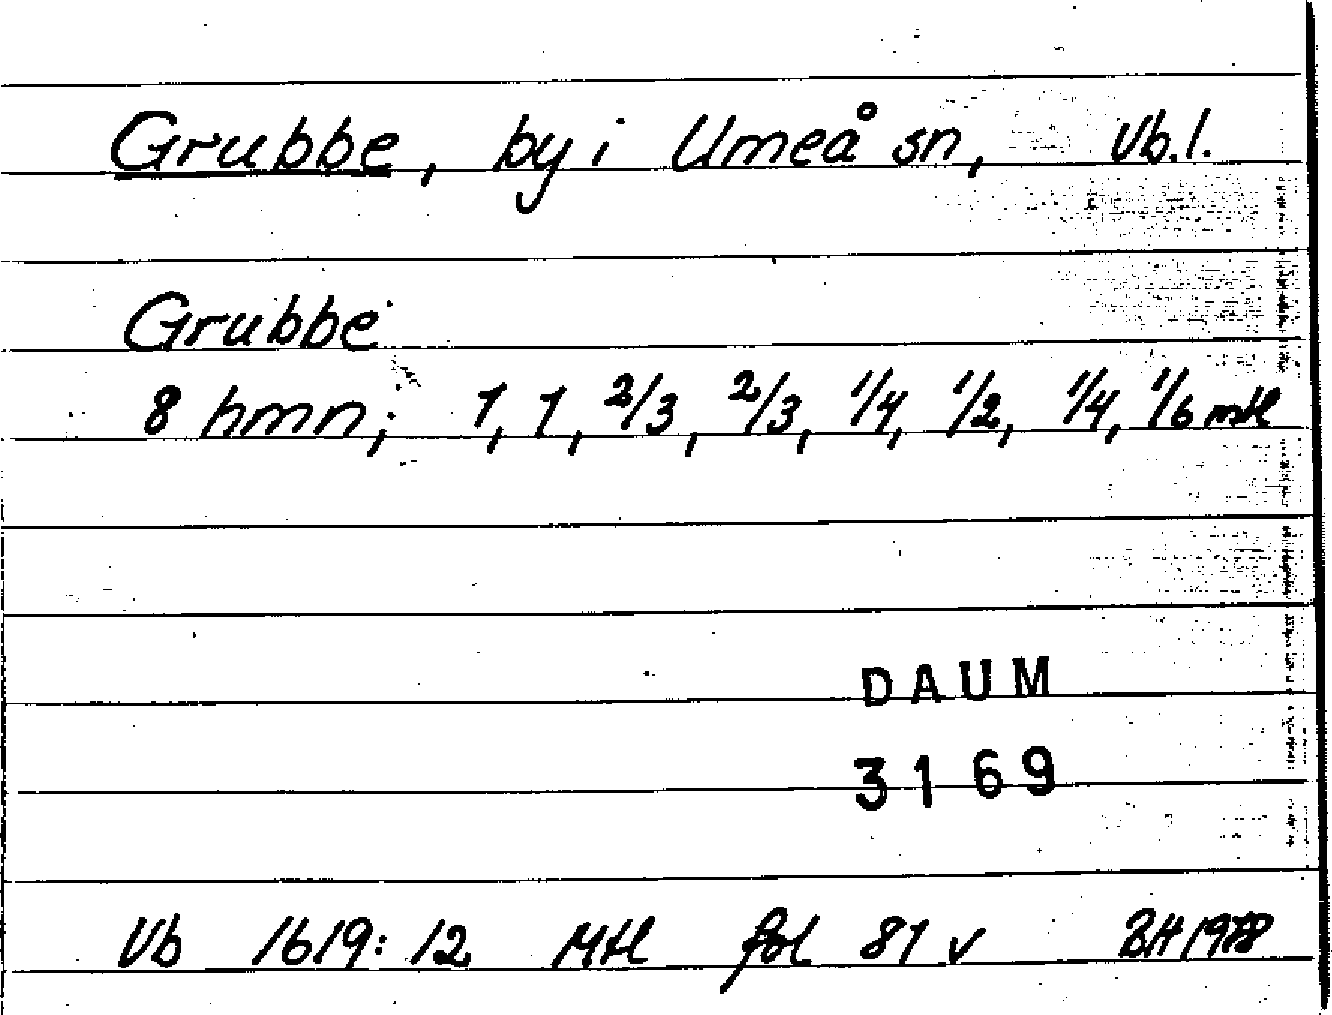 Grubbe, by i Umeå sn, Vb.l.
Grubbe
8 hmn; 1, 1, 2/3, 2/3, 1/4, 1/2, 1/4, 1/6 mtl
DAUM
3169
Vb 1619:12 Mtl fol 81 v BH 1978